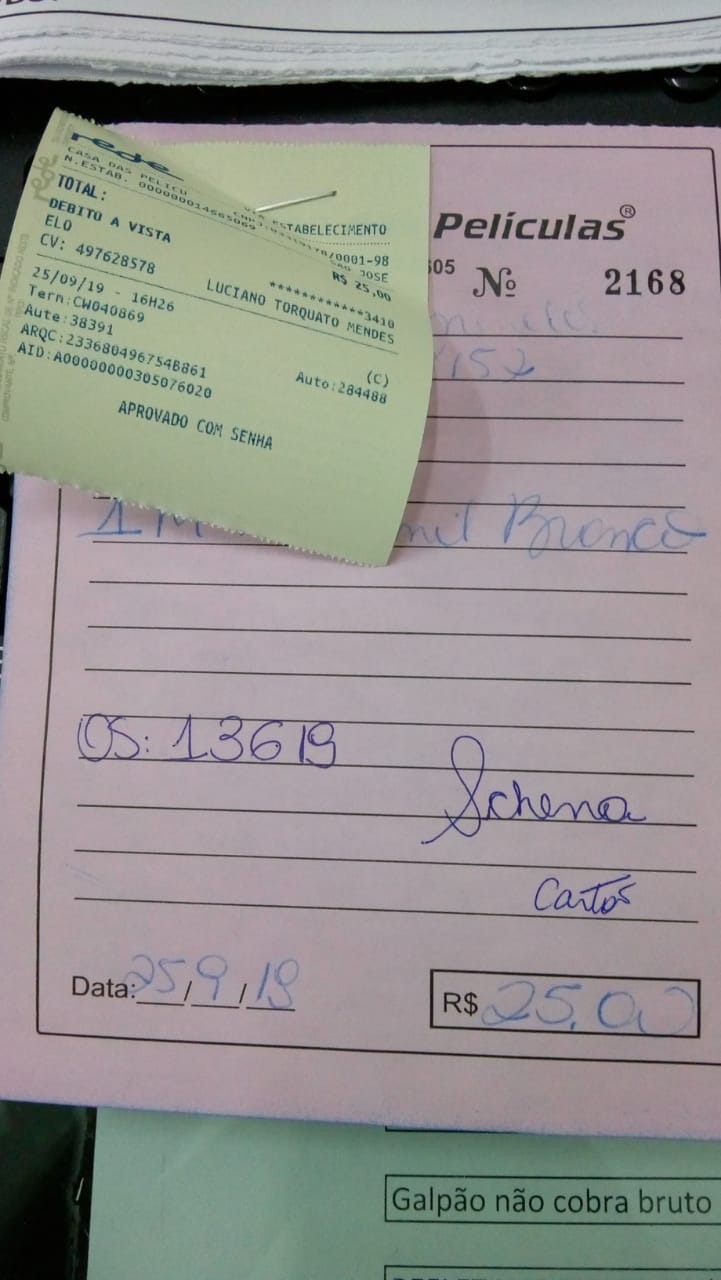 rede
CASA DAS PELICU
VIA ESTABELECIMENTO
N.ESTAB: 000000014665069
/0001-98
SAO JOSE
TOTAL:
R$ 25,00
DEBITO A VISTA
ELO
************3410
CV: 497628578
LUCIANO TORQUATO MENDES
25/09/19 - 16H26
Term:CW040869
(C)
Aute:38391
Auto:284488
ARQC:2336804967548861
AID:A0000000305076020
APROVADO COM SENHA
Películas®
605
Nº 2168
152
1 M
mil Branco
OS: 13619
Schena
Cartão
Data: 25/9/19
R$ 25,00
Galpão não cobra bruto